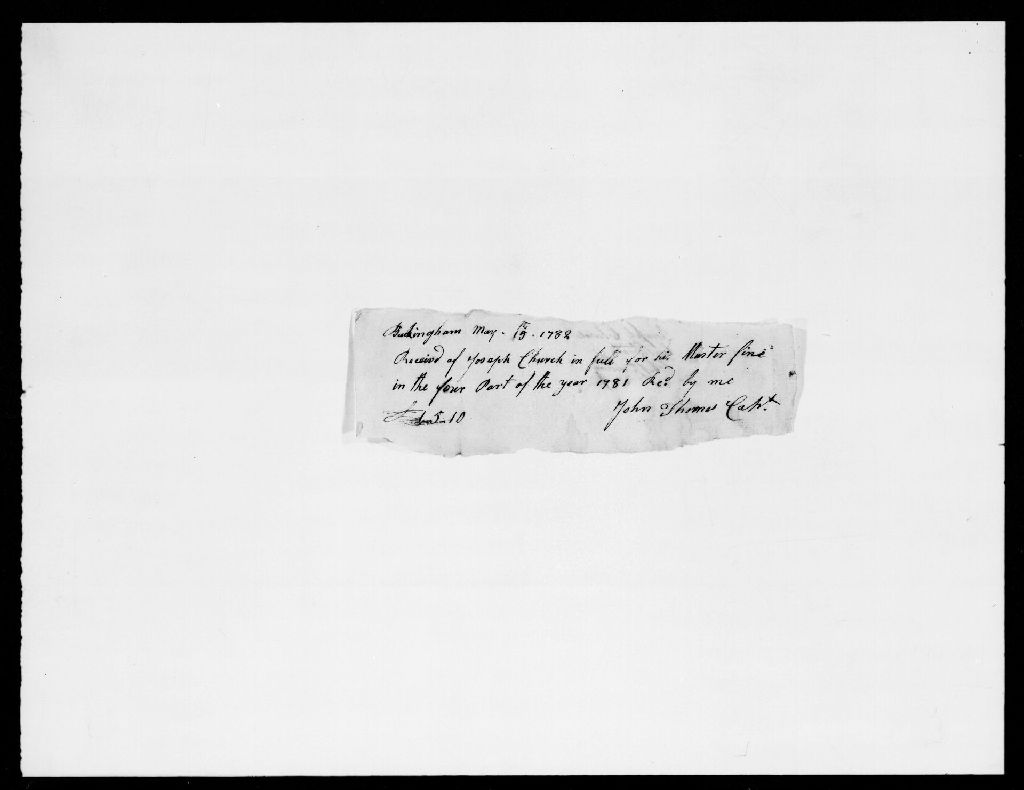 Buckingham May - 13th - 1782
Receivd of Joseph Church in full for his Muster fine
in the fore Part of the year 1781 Recd by me
John Thomas Capt.
5 " 10